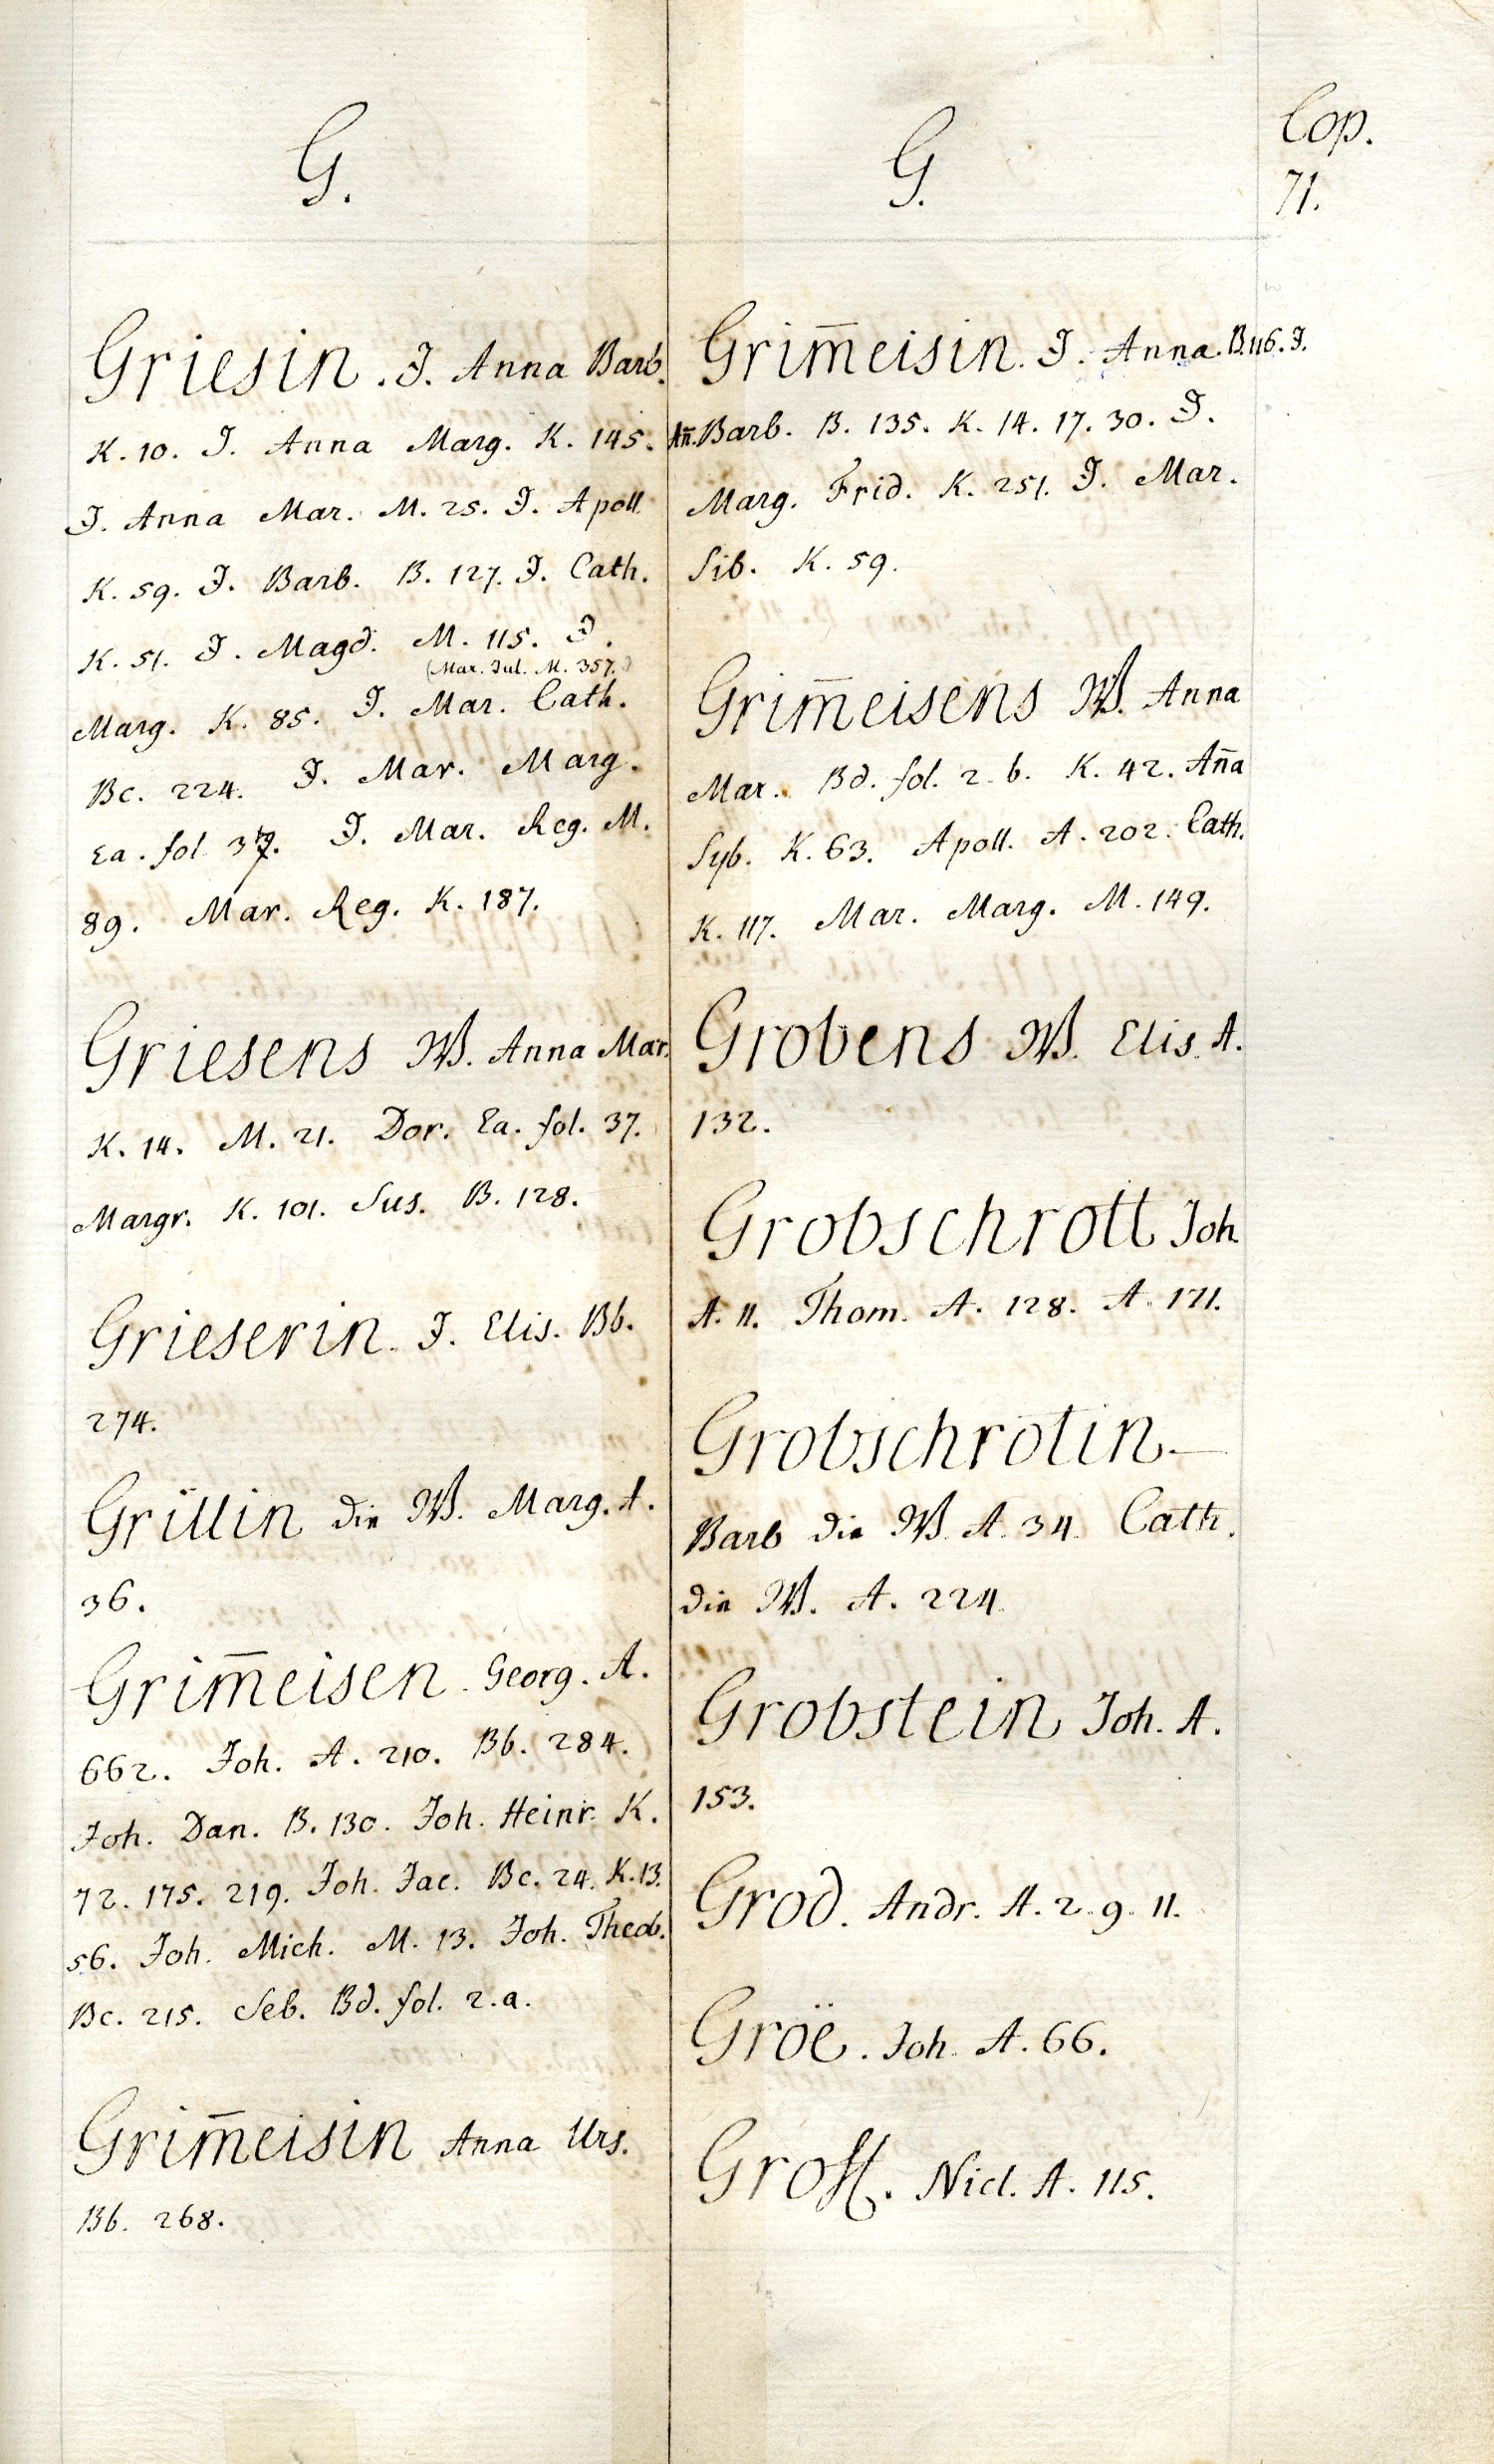 G.
Griesin. J. Anna Barb.
K. 10. J. Anna Marg. K. 145.
J. Anna Mar. M. 25. J. Apoll.
K. 59. J. Barb. B. 127. J. Cath.
K. 51. J. Magd. M. 115. J.
(Mar. Jul. M. 357.)
Marg. K. 85. J. Mar. Cath.
Bc. 224. J. Mar. Marg.
Ea. fol. J. Mar. Reg. M.
89. Mar. Reg. K. 187.
Griesens W. Anna Mar.
K. 14. M. 21. Dor. Ea. fol. 37.
Margr. K. 101. Sus. B. 128.
Grieserin. J. Elis. Bb.
274.
Grillin die W. Marg. A.
36.
Grim̅eisen. Georg. A.
662. Joh. A. 210. Bb. 284.
Joh. Dan. B. 130. Joh. Heinr. K.
72. 175. 219. Joh. Jac. Bc. 24. K. 13.
56. Joh. Mich. M. 13. Joh. Theob.
Bc. 215. Seb. Bd. fol. 2. a.
Grim̅eisin Anna Urs.
Bb. 268.
G.
Grim̅eisin. J. Anna. B. 116. J.
An̅. Barb. B. 135. K. 14. 17. 30. J.
Marg. Frid. K. 251. J. Mar.
Sib. K. 59.
Grim̅eisens W. Anna
Mar. Bd. fol. 2. b. K. 42. An̅a
Syb. K. 63. Apoll. A. 202. Cath.
K. 117. Mar. Marg. M. 149.
Grobens W. Elis. A.
132.
Grobschrott Joh.
A. 11. Thom. A. 128. A. 171.
Grobschrotin—
Barb die W. A. 34. Cath.
die W. A. 224.
Grobstein Joh. A.
153.
Grod. Andr. A. 2. 9. 11.
Gröe. Joh. A. 66.
Groß. Nicl. A. 115.
Cop.
71.